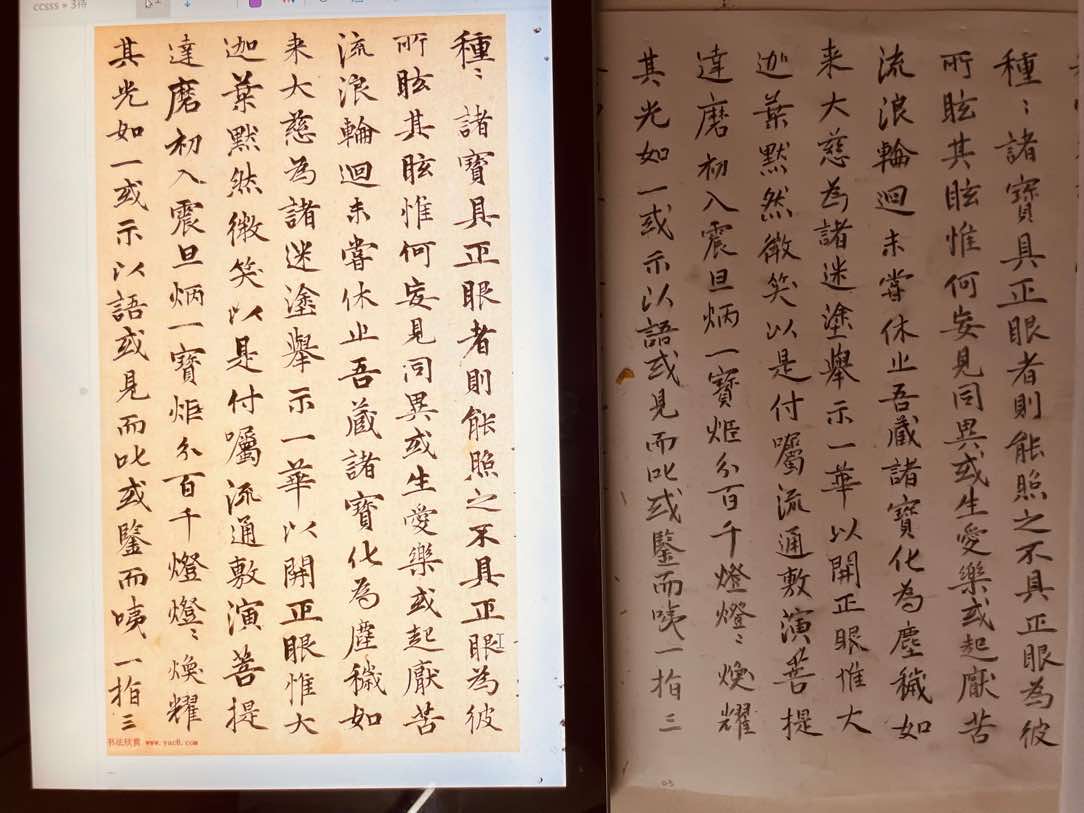 ccsss • 3待
種〻諸寶具正眼者則能照之不具正眼為彼
所眩其眩惟何妄見同異或生愛樂或起厭苦
流浪輪迴未嘗休止吾蔵諸寶化為塵穢如
来大慈為諸迷塗舉示一華以開正眼惟大
迦葉默然微笑以是付囑流通敷演菩提
達磨初入震旦炳一寶炬分百千燈燈〻煥耀
其光如一或示以語或見而叱或鑒而咦一指三
书法欣赏 www.yac8.com
種〻諸寶具正眼者則能照之不具正眼為彼
所眩其眩惟何妄見同異或生愛樂或起厭苦
流浪輪迴未嘗休止吾蔵諸寶化為塵穢如
来大慈為諸迷塗舉示一華以開正眼惟大
迦葉默然微笑以是付囑流通敷演菩提
達磨初入震旦炳一寶炬分百千燈燈〻煥耀
其光如一或示以語或見而叱或鑒而咦一指三